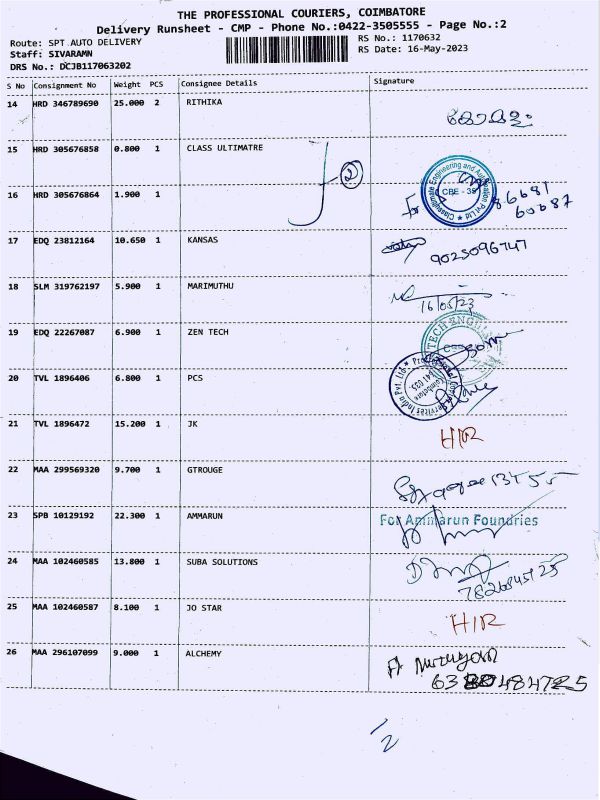 THE PROFESSIONAL COURIERS, COIMBATORE
Delivery Runsheet - CMP - Phone No.:0422-3505555 - Page No.:2
Route: SPT AUTO DELIVERY
RS No.: 1170632
Staff: SIVARAMN
RS Date: 16-May-2023
DRS No.: DCJB117063202
S No Consignment No Weight PCS Consignee Details Signature
14 HRD 346789690 25.000 2 RITHIKA
15 HRD 305676858 0.800 1 CLASS ULTIMATRE
2
16 HRD 305676864 1.900 1
For
CBE - 35
86681
60687
17 EDQ 23812164 10.650 1 KANSAS
9025096747
18 SLM 319762197 5.900 1 MARIMUTHU
16/05/23
19 EDQ 22267087 6.900 1 ZEN TECH
20 TVL 1896406 6.800 1 PCS
21 TVL 1896472 15.200 1 JK
H/R
22 MAA 299569320 9.700 1 GTROUGE
23 SPB 10129192 22.300 1 AMMARUN
For Ammarun Foundries
24 MAA 102460585 13.800 1 SUBA SOLUTIONS
7826845125
25 MAA 102460587 8.100 1 JO STAR
H/R
26 MAA 296107099 9.000 1 ALCHEMY
1/2